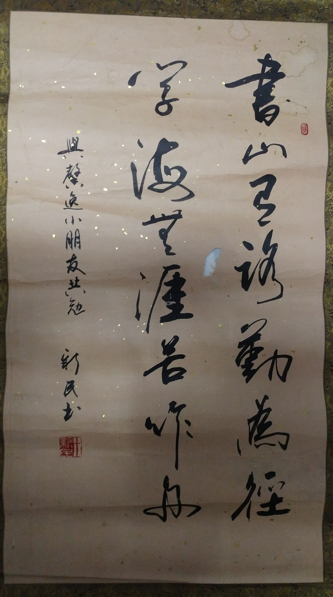 書山有路勤為徑
学海無涯苦作舟
與馨逸小朋友共勉
新民书